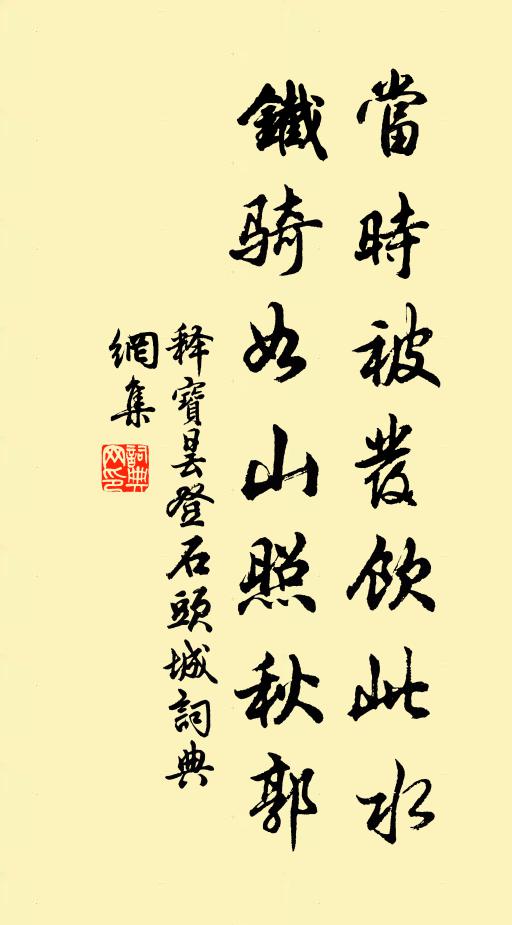 當時被發飲此水
鐵騎如山照秋郭
释寶曇登石頭城詞典
網集
詞典
网印